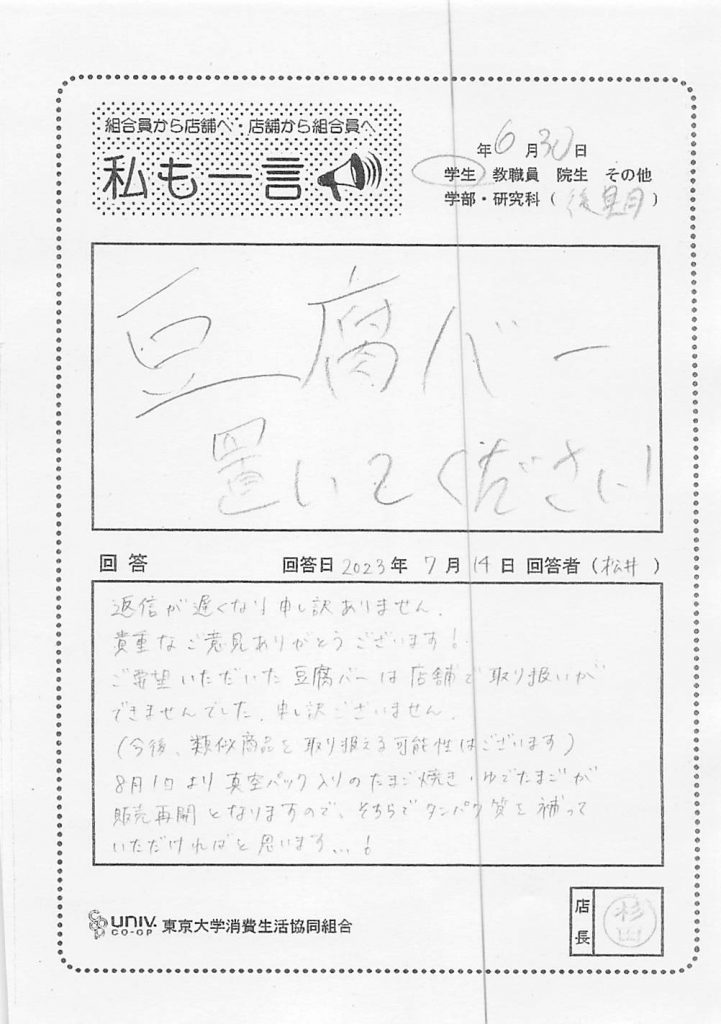 組合員から店舗へ・店舗から組合員へ
私も一言
年6月30日
学生 教職員 院生 その他
学部・研究科（後期）
豆腐バー
置いてください!
回答 回答日2023年7月14日 回答者（松井）
返信が遅くなり申し訳ありません。
貴重なご意見ありがとうございます!
ご要望いただいた豆腐バーは店舗で取り扱いが
できませんでした。申し訳ございません。
(今後、類似商品を取り扱える可能性はございます)
8月1日より真空パック入りのたまご焼き・ゆでたまごが
販売再開となりますので、そちらでタンパク質を補って
いただければと思います...!
UNIV. CO-OP 東京大学消費生活協同組合
店長 杉田